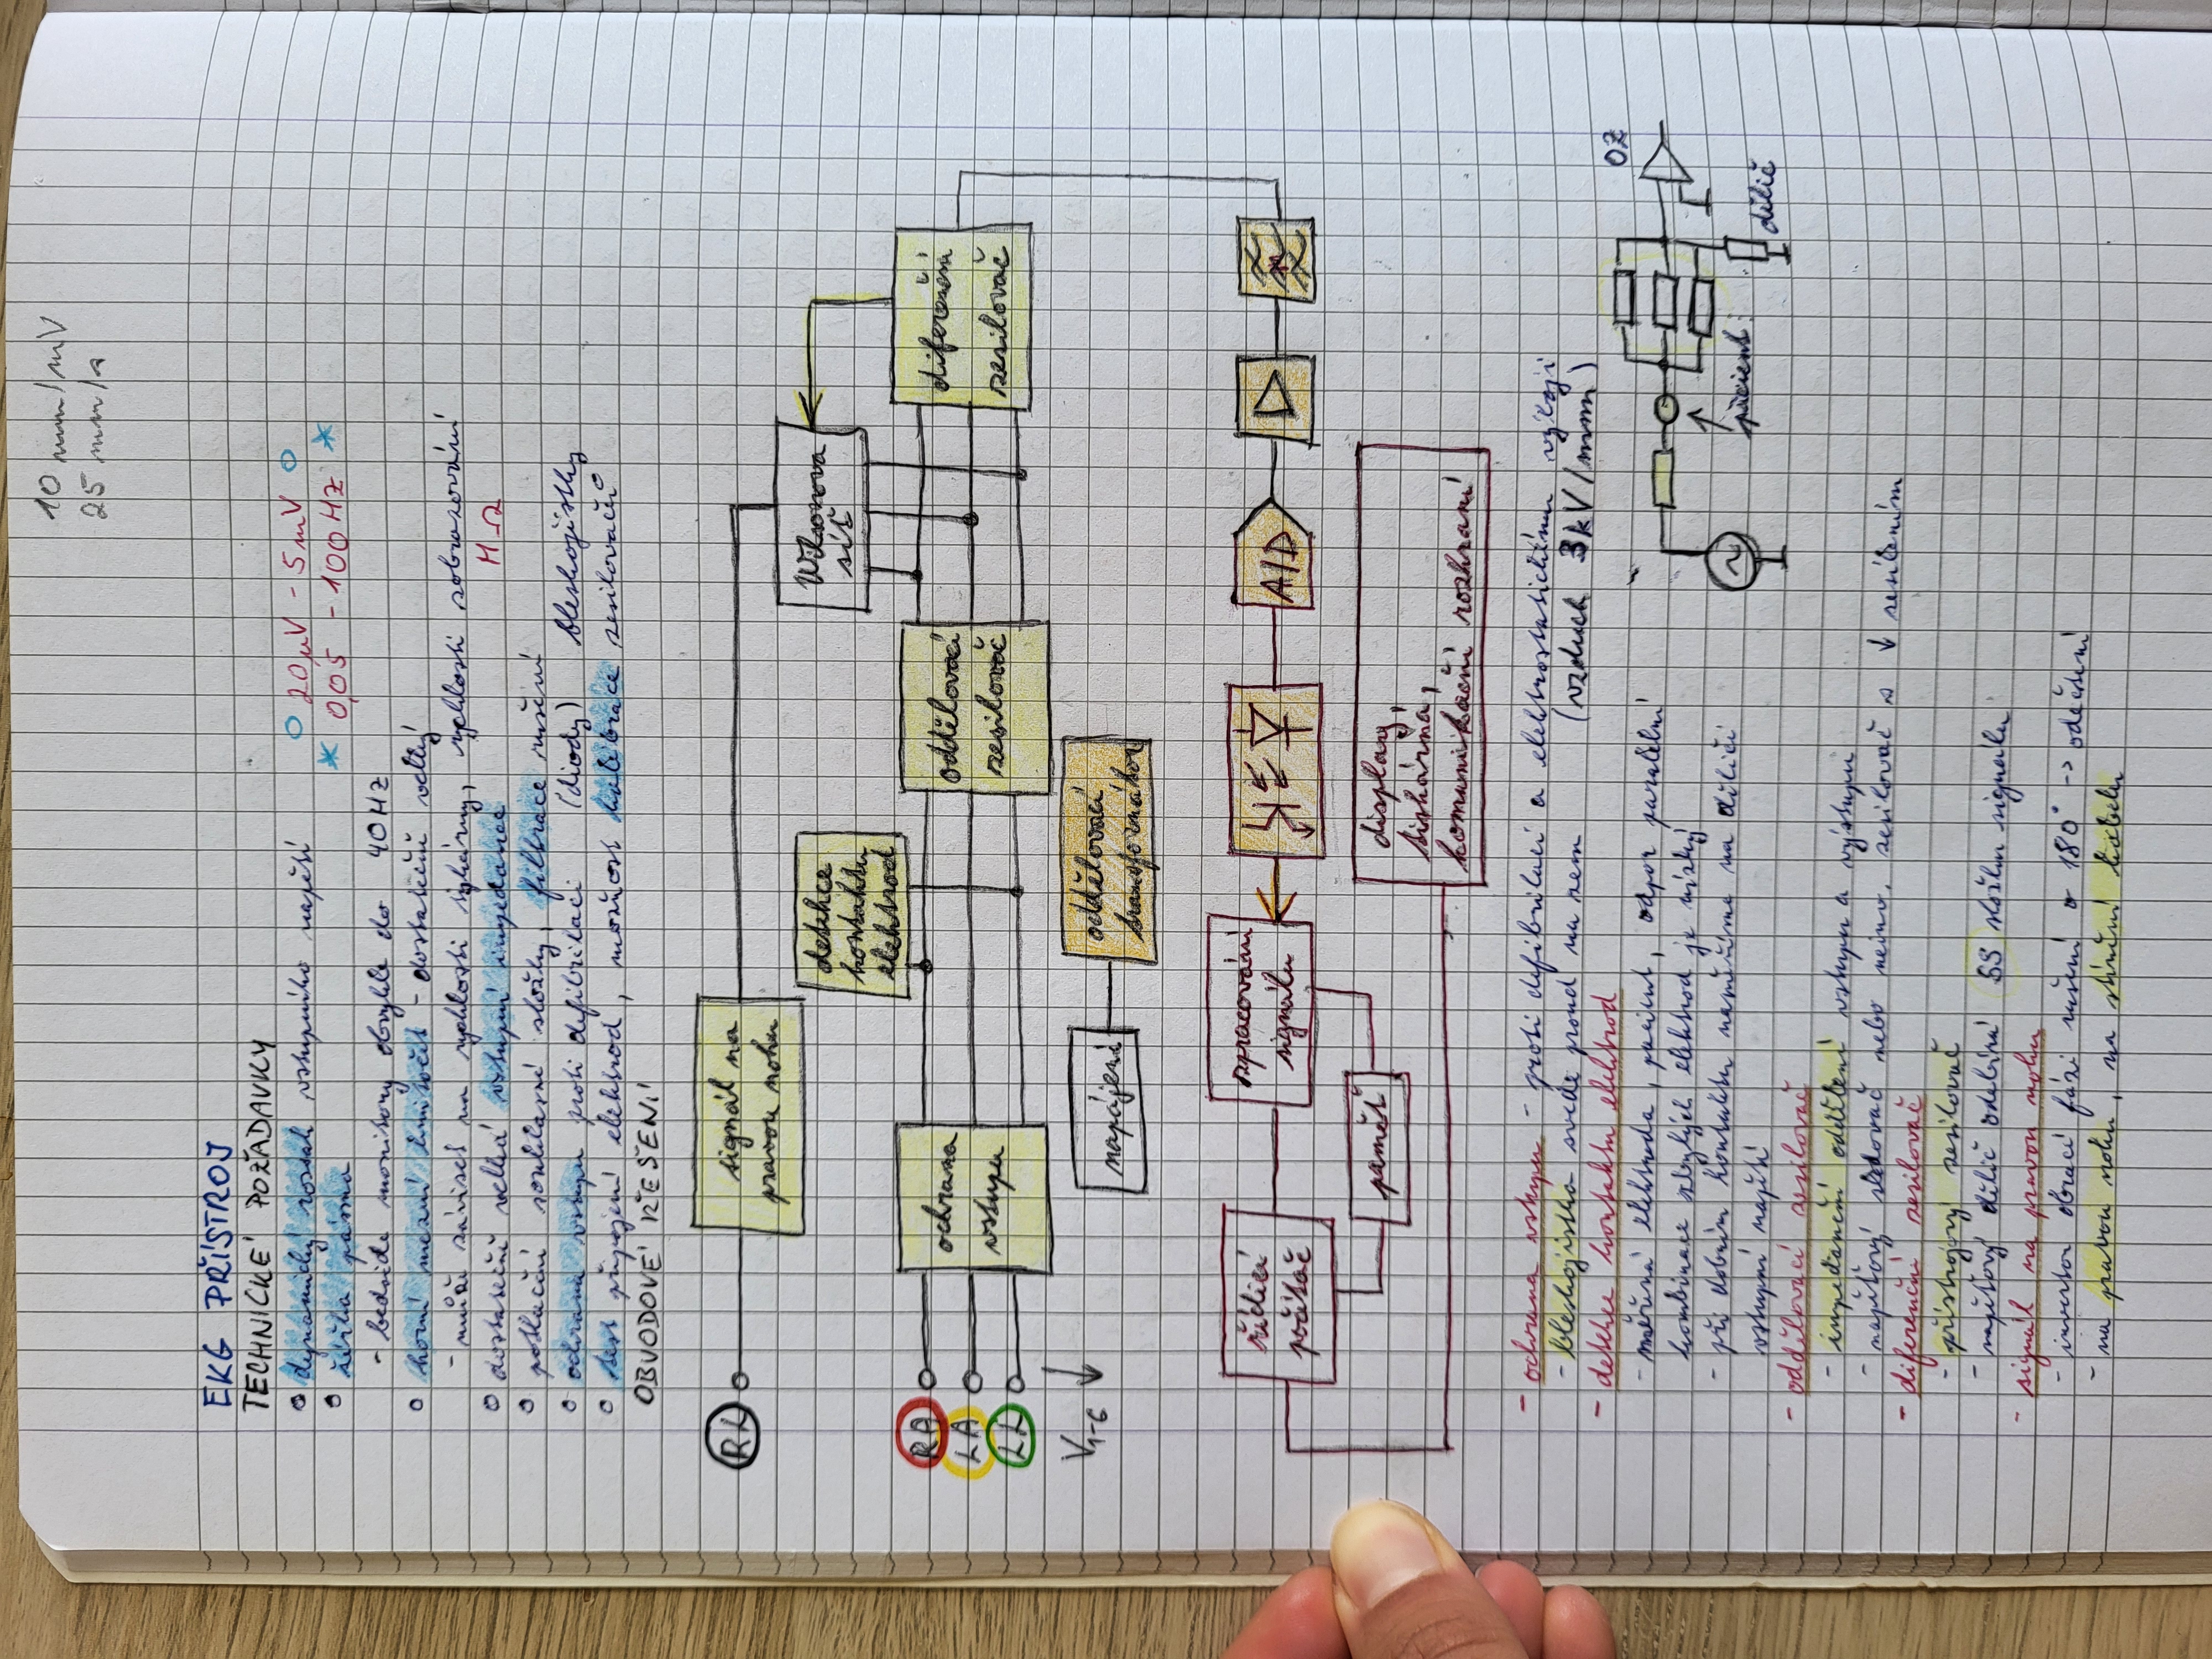 10 mm/mV
25 mm/s
EKG PŘÍSTROJ
TECHNICKÉ POŽADAVKY
dynamický rozsah vstupního napětí 20 µV - 5 mV
šířka pásma * 0,05 - 100 HZ *
- bedside monitory obvykle do 40 HZ
horní mezní kmitočet - dostatečně velký
- může záviset na rychlosti tiskárny, rychlosti zobrazování
dostatečně velká vstupní impedance MΩ
potlačení souhlasné složky, filtrace rušení
ochrana vstupu proti defibrilaci (diody) bleskojistky
test připojení elektrod, možnost kalibrace zesilovačů
OBVODOVÉ ŘEŠENÍ
RL
signál na
pravou nohu
detekce
kontaktu
elektrod
Wilsonova
síť
RA
LA
LL
V1-6
ochrana
vstupu
oddělovací
zesilovač
diferenční
zesilovač
napájení
oddělovací
transformátor
řídící
počítač
zpracování
signálu
A/D
paměť
display,
tiskárna,
komunikační rozhraní
- ochrana vstupu - proti defibrilaci a elektrostatickému výboji
- bleskojistka svede proud na zem (vzduch 3kV/mm)
- detekce kontaktu elektrod
- měřená elektroda, pacient, odpor paralelní
kombinace zbylých elektrod je nízký
- při dobrém kontaktu naměříme na děliči
vstupní napětí
OZ
pacient
dělič
- oddělovací zesilovač
- impedanční oddělení vstupu a výstupu
- napěťový sledovač nebo neinv. zesilovač s ↓ zesílením
- diferenční zesilovač
- přístrojový zesilovač
- napěťový dělič odebírá SS složku signálu
- signál na pravou nohu
- invertor obrací fázi rušení o 180° -> odečtení
- na pravou nohu, na stínění kabelu